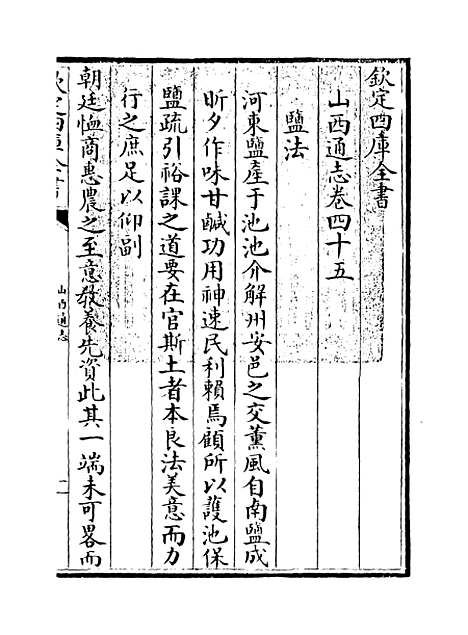 欽定四庫全書
山西通志卷四十五
鹽法
河東鹽產于池池介解州安邑之交薰風自南鹽成
昕夕作味甘鹹功用神速民利賴焉顧所以護池保
鹽疏引裕課之道要在官斯土者本良法美意而力
行之庶足以仰副
朝廷恤商惠農之至意教養先資此其一端未可畧而
欽定四庫全書
山西通志